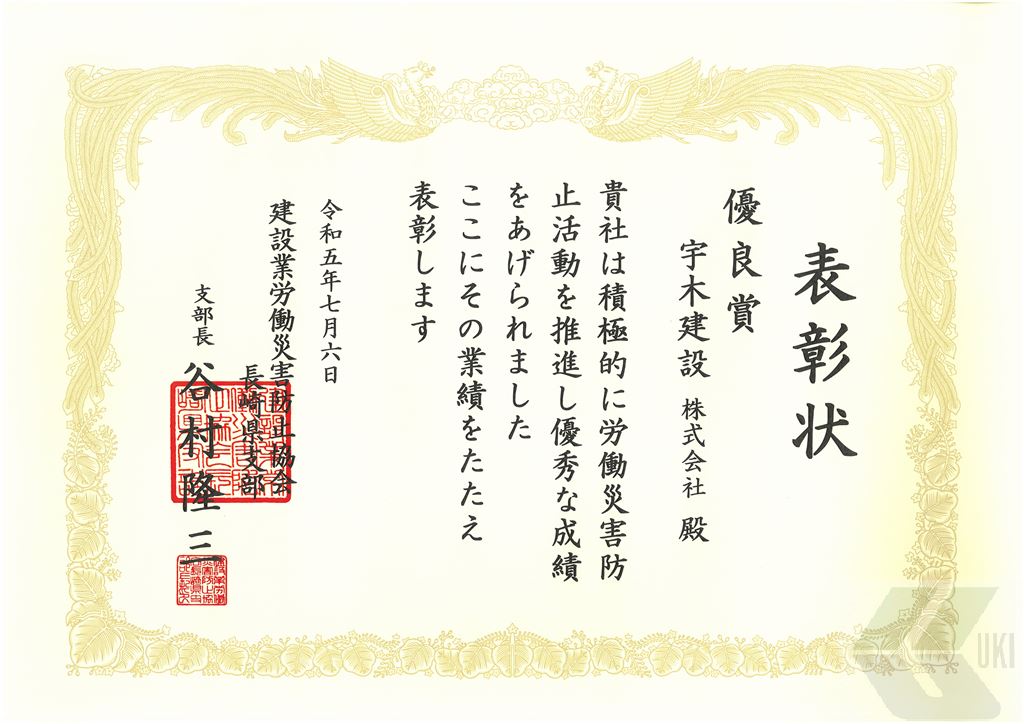 表彰状
優良賞
宇木建設 株式会社 殿
貴社は積極的に労働災害防
止活動を推進し優秀な成績
をあげられました
ここにその業績をたたえ
表彰します
令和五年七月六日
建設業労働災害防止協会
長崎県支部
支部長 谷村隆三
UKI